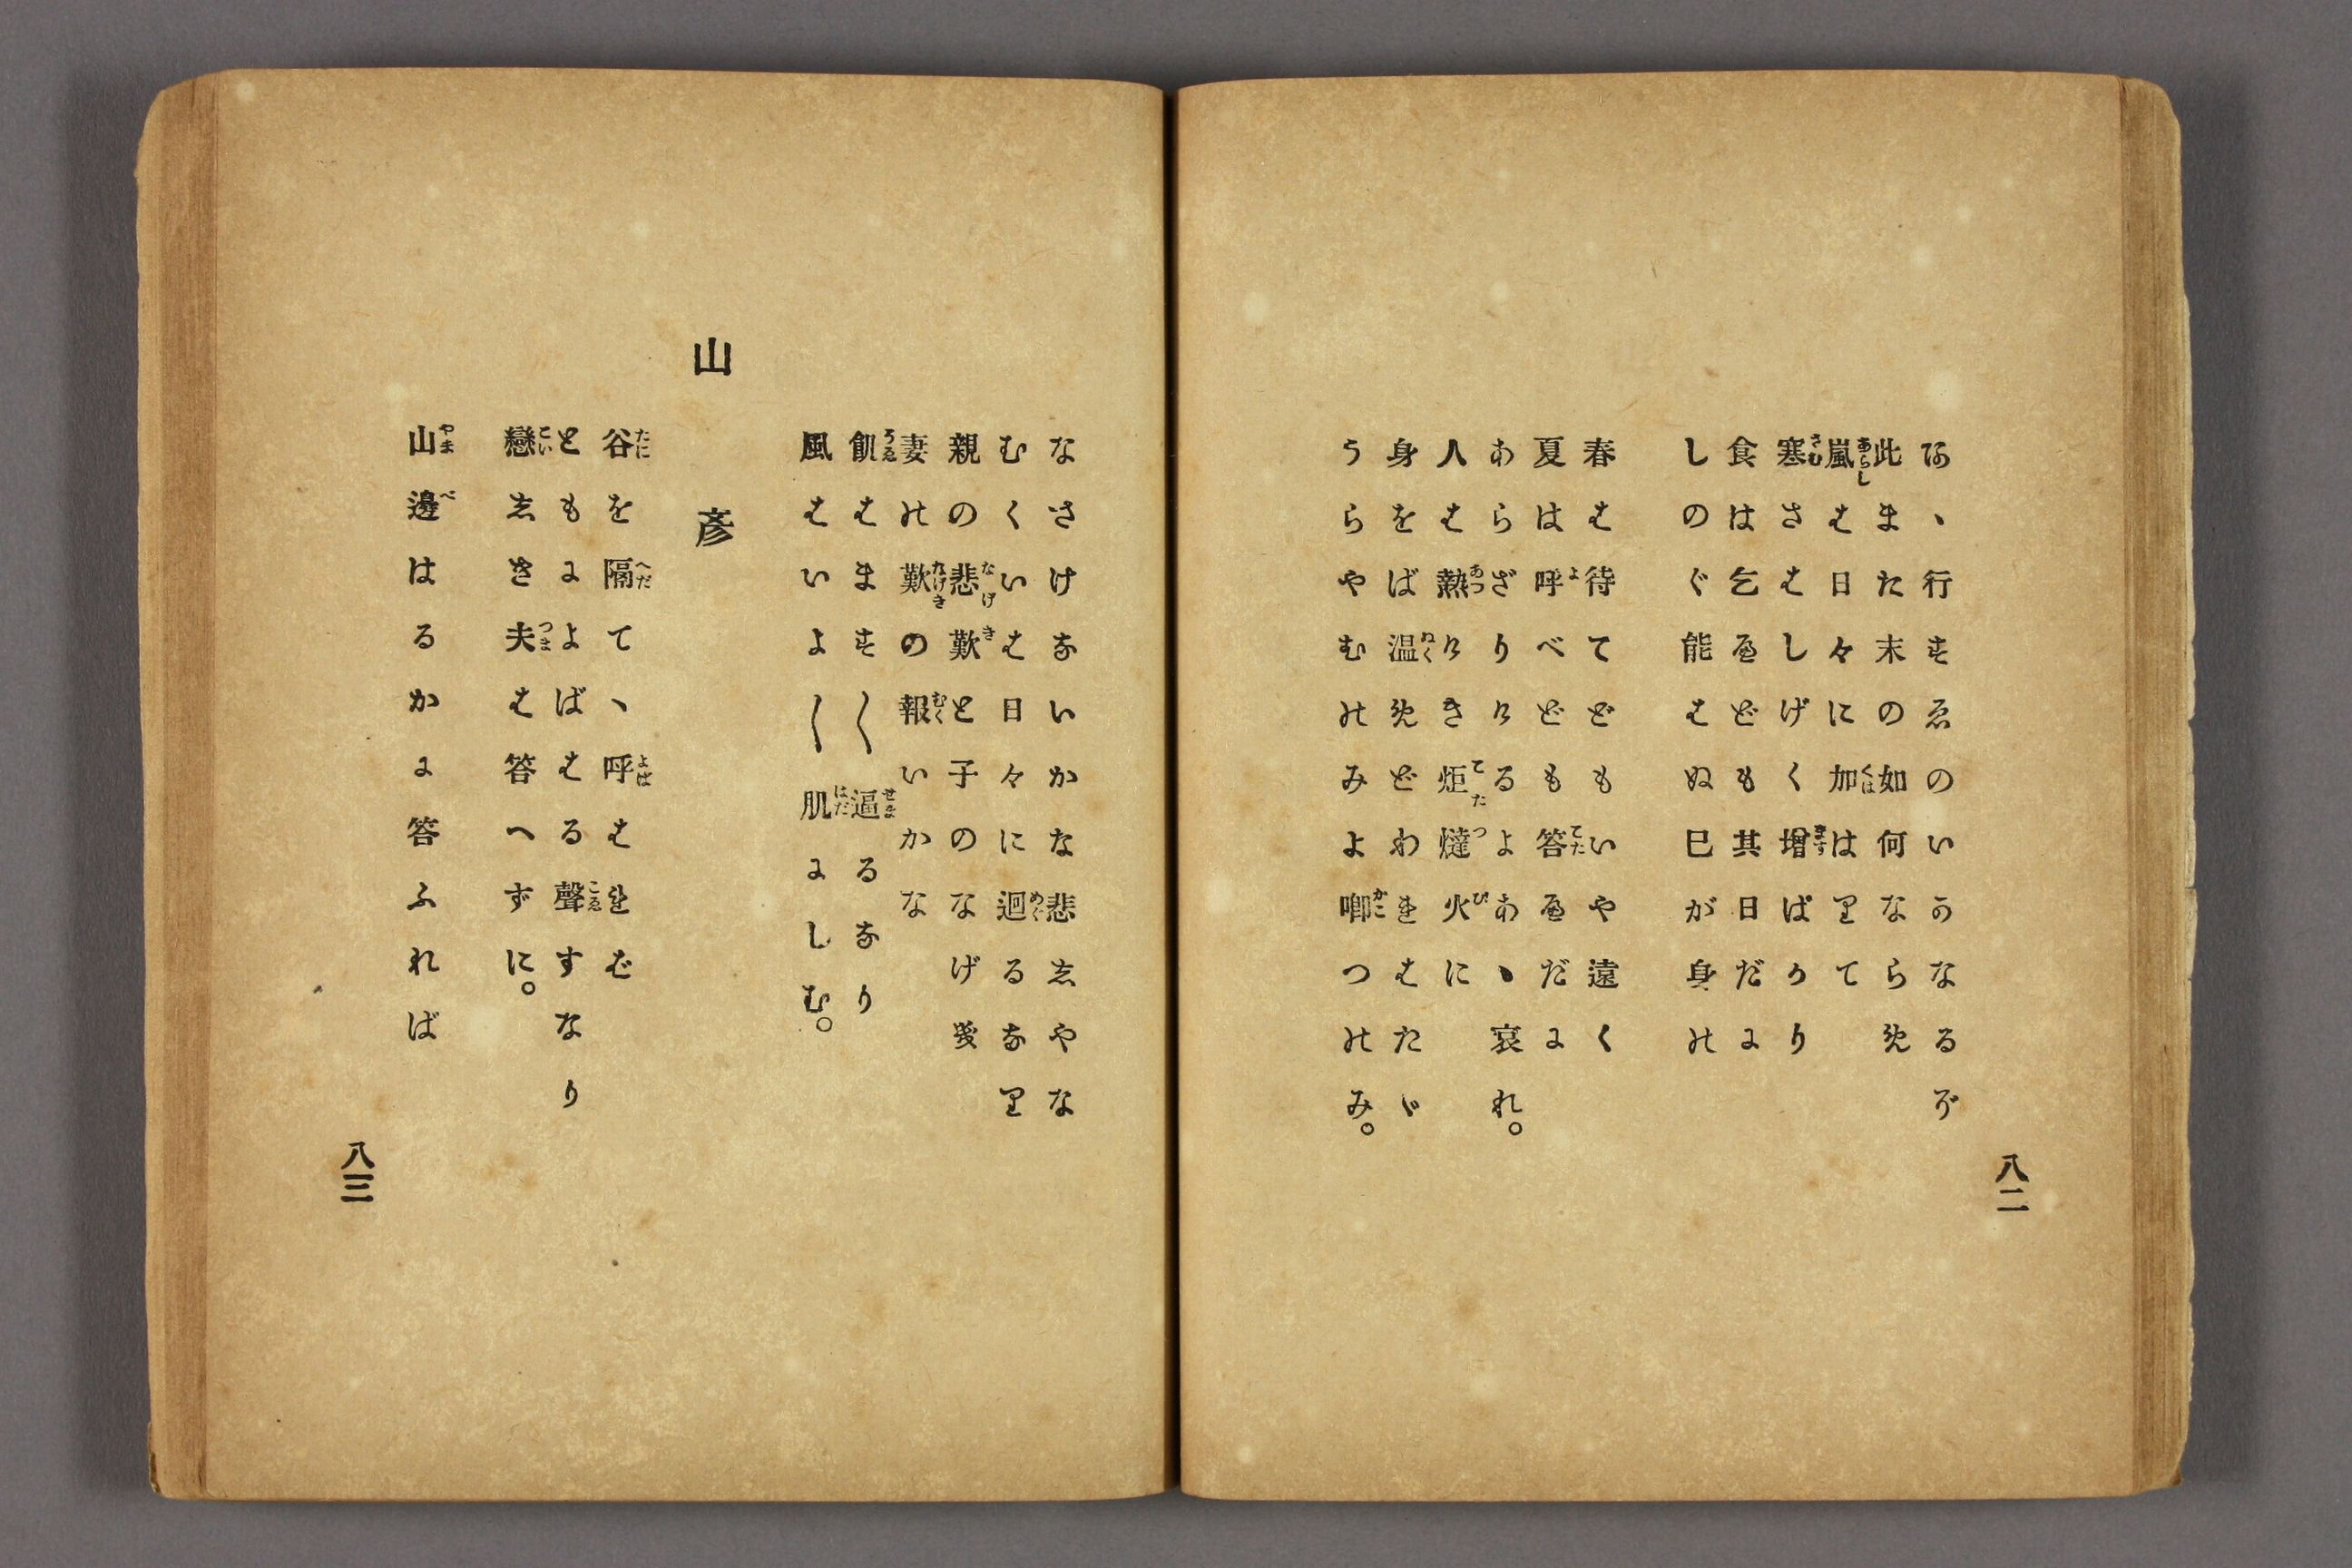 あゝ行すゑのいかなるぞ
此また末の如何ならむ
嵐は日々に加はりて
寒さはしげく増ばかり
食は乞へども其日だに
しのぐ能はぬ巳が身の
春は待てどもいや遠く
夏は呼べども答へだに
あらざりけるよあゝ哀れ。
人は熱けき炬燵火に
身をば温めどわれはたゞ
うらやむのみよ啣つのみ。
八二
なさけないかな悲しやな
むくいは日々に迴るなり
親の悲歎と子のなげき
妻の歎の報いかな
飢はます〱逼るなり
風はいよ〱肌にしむ。
山彥
谷を隔てゝ呼はれば
ともによばはる聲すなり
戀しき夫は答へずに。
山邊はるかに答ふれば
八三